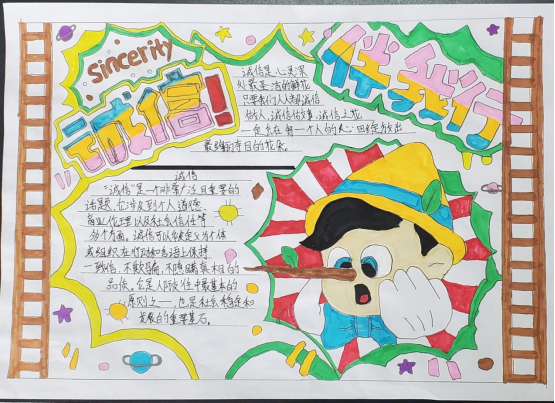 sincerity
诚信!
伴我行
诚信是心灵深
处最圣洁的鲜花
只要我们人人都诚信
做人,诚信做事,诚信之花
一定会在每一个人的心田绽放出
最绚丽夺目的花朵。
诚信
"诚信"是一个非常广泛且重要的
话题,它涉及到个人道德、
商业伦理以及社会信任等
多个方面。诚信可以被定义为个体
或组织在行为和言语上保持
一致性、不欺骗、不隐瞒真相的
品质。它是人际交往中最基本的
原则之一,也是社会稳定和
发展的重要基石。